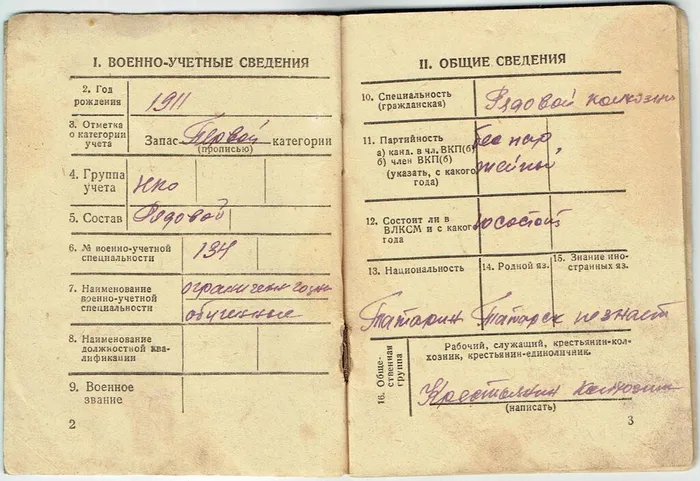 I. ВОЕННО-УЧЕТНЫЕ СВЕДЕНИЯ
2. Год
рождения
1911
3. Отметка
о категории
учета
Запас Первой категории
(прописью)
4. Группа
учета
нко
5. Состав
Рядовой
6. № военно-учетной
специальности
134
7. Наименование
военно-учетной
специальности
обученные
8. Наименование
должностной ква-
лификации
9. Военное
звание
2
II. ОБЩИЕ СВЕДЕНИЯ
10. Специальность
(гражданская)
Рядовой колхозник
11. Партийность
а) канд. в чл. ВКП(б)
б) член ВКП(б)
(указать, с какого
года)
бес пар
тейный
12. Состоит ли в
ВЛКСМ и с какого
года
13. Национальность
14. Родной яз.
15. Знание ино-
странных яз.
Татарин Татарск не знает
16. Обще-
ственная
группа
Рабочий, служащий, крестьянин-кол-
хозник, крестьянин-единоличник.
Крестьянин колхозник
(написать)
3